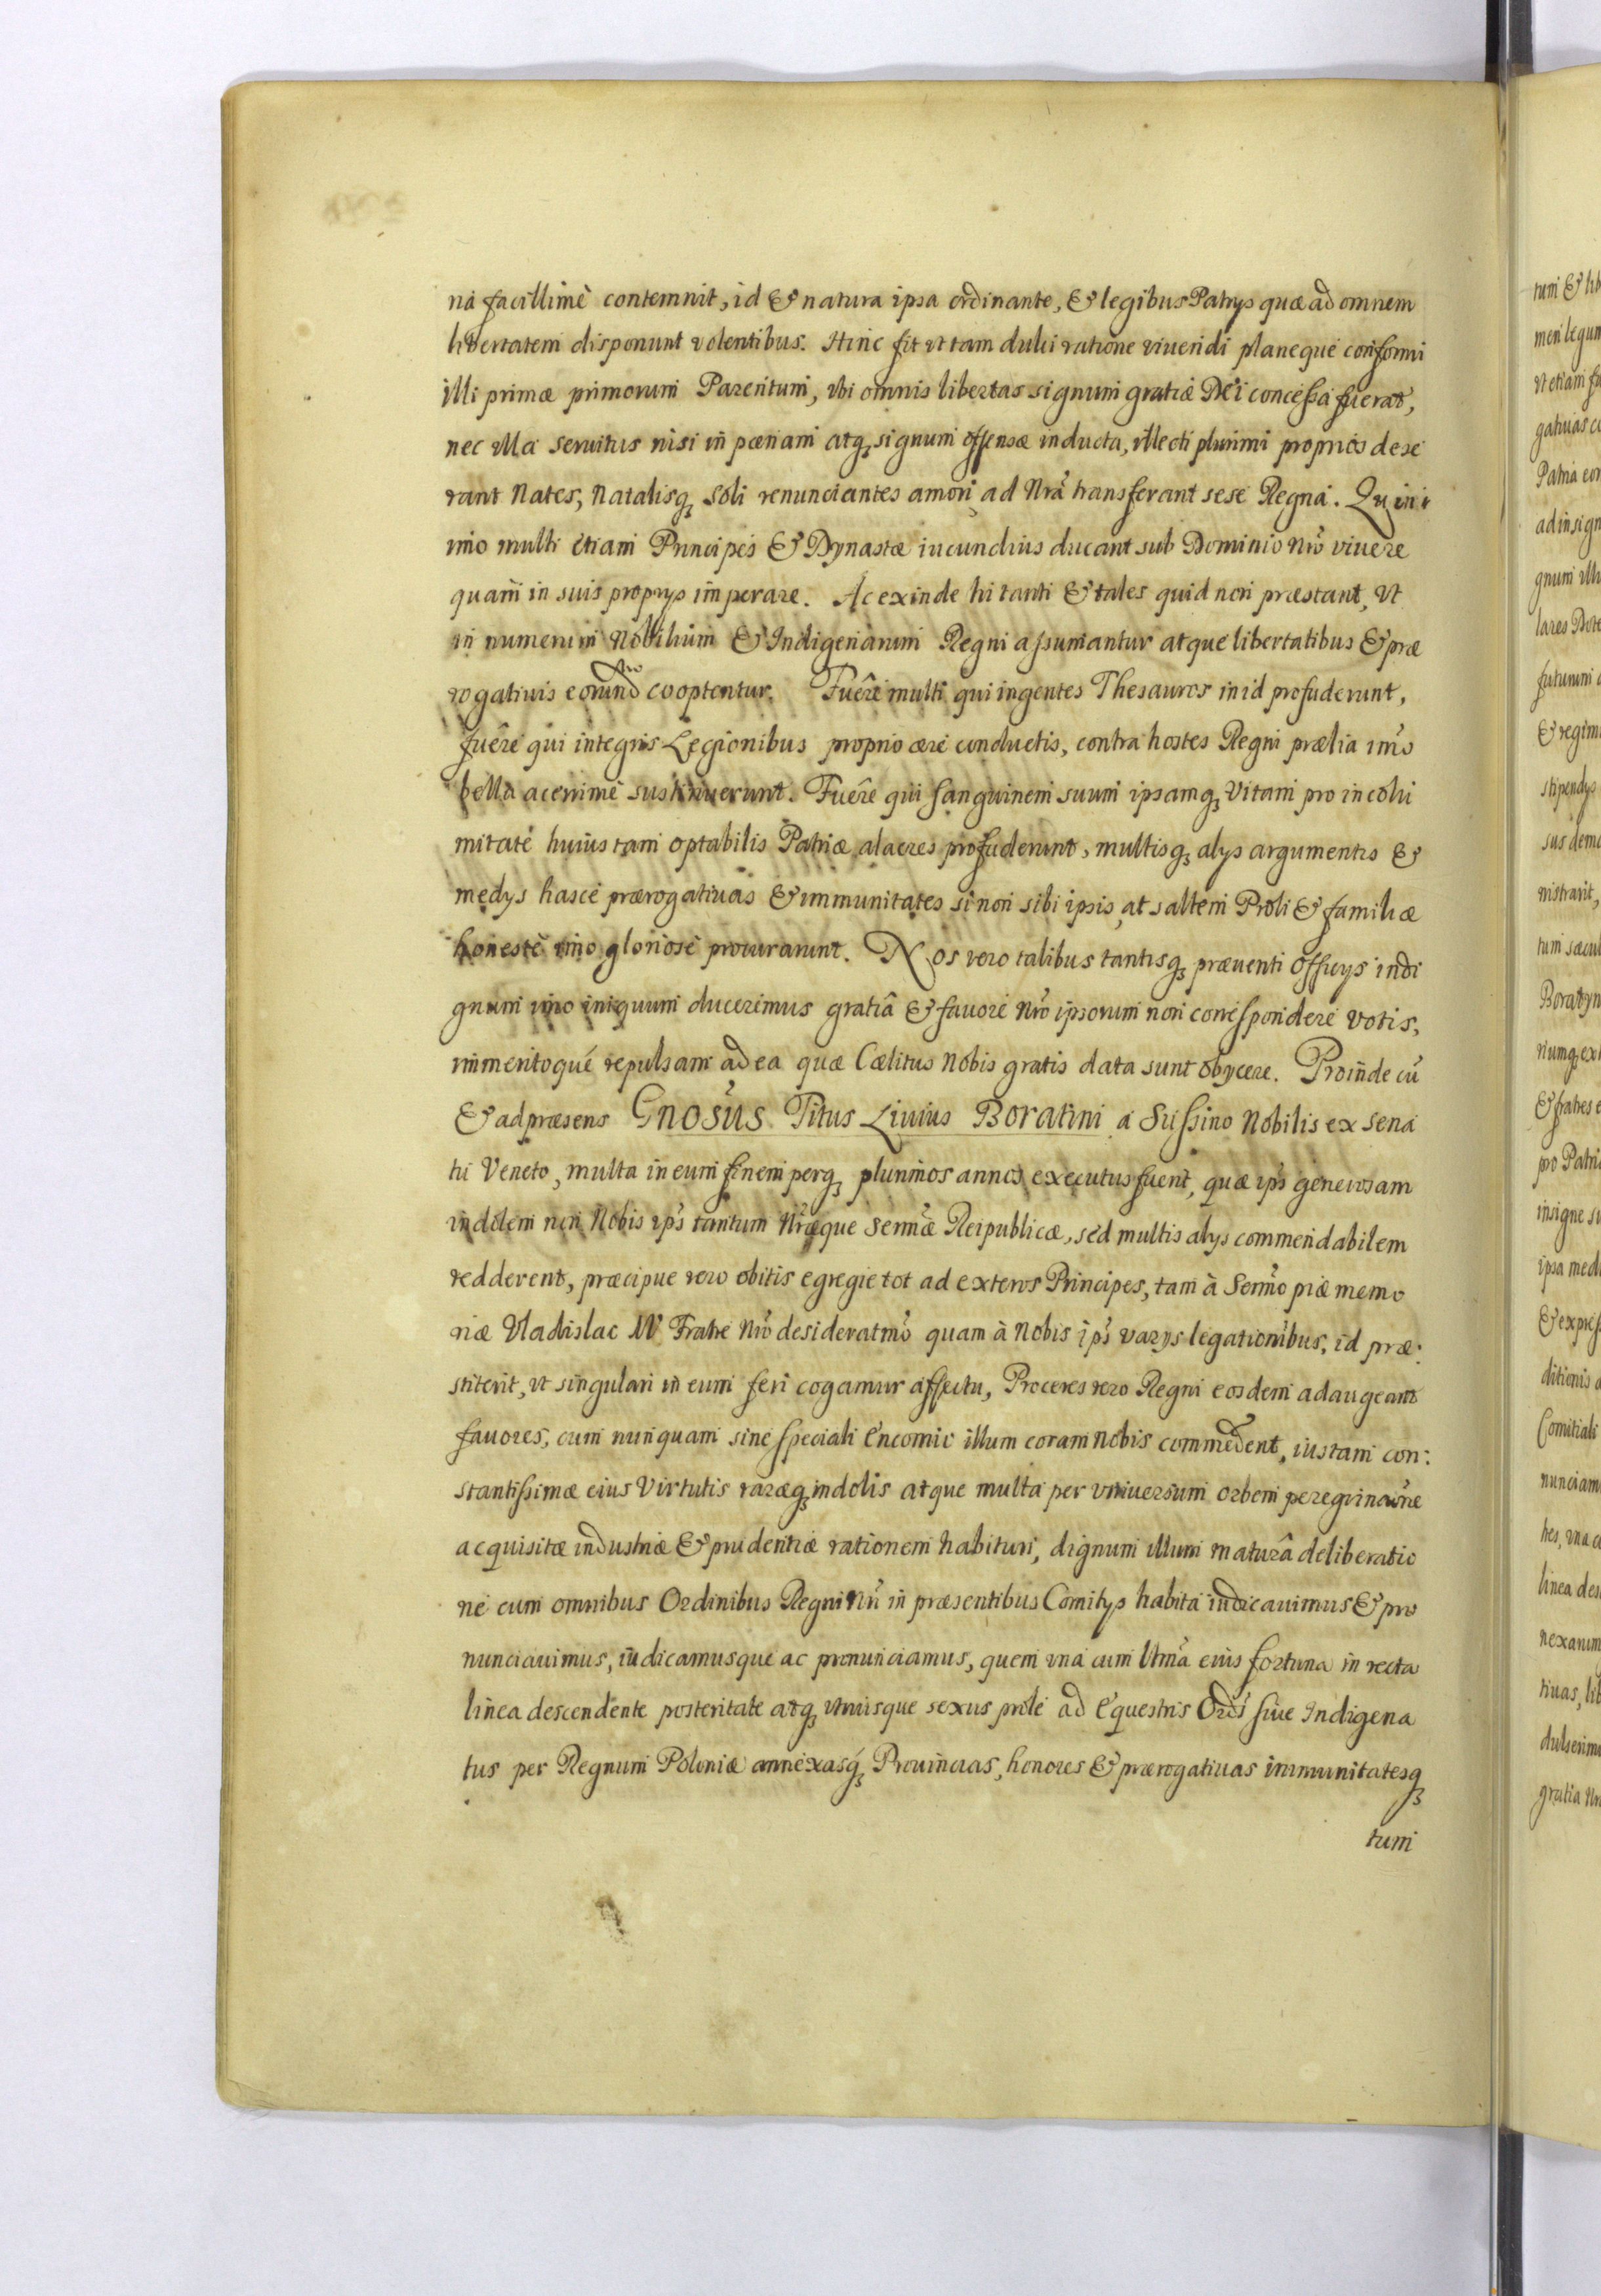 na facillimè contemnit, id & natura ipsa ordinante, & legibus Patrys quæ ad omnem
libertatem disponunt volentibus. Hinc fit vt tam dulci ratione viuendi planeque conformi
illi primæ primorum Parentum, vbi omnis libertas signum gratiæ Dei concessa fuerat,
nec vlla seruitus nisi in pœnam atq; signum offensæ inducta, illecti plurimi proprios dese
rant Nates, Natalisq; soli renunciantes amori ad Nrã transferant sese Regna. Quini
mo multi etiam Principes & Dynastæ iucundius ducant sub Dominio Nrõ viuere
quam in suis proprys imperare. Ac exinde hi tanti & tales quid non præstant, vt
in numerum Nobilium & Indigenarum Regni assumantur atque libertatibus & præ
rogatiuis eorund cooptentur. Fuêre multi qui ingentes Thesauros in id profuderunt,
fuêre qui integris Legionibus proprio ære conductis, contra hostes Regni prælia imo
bella acerrimè sustinuerunt. Fuêre qui sanguinem suum ipsamq; vitam pro incolu
mitate huius tam optabilis Patriæ alacres profuderunt, multisq; alys argumentis &
medys hasce prærogatiuas & immunitates si non sibi ipsis, at saltem Proli & familiæ
honestè imo gloriosè procurarunt. Nos vero talibus tantisq; præuenti officys indi
gnum imo iniquum duceremus gratiâ & fauore Nrõ ipsorum non correspondere votis,
immeritoque repulsam ad ea quæ Cælitus Nobis gratis data sunt obycere. Proinde cũ
& ad præsens Gnosus Titus Liuius Boratini a Sussino Nobilis ex Sena
tu Veneto, multa in eum finem perq; plurimos annos executus fuerit, quæ ips generosam
indolem non Nobis ips tantum Nræque Sermæ Reipublicæ, sed multis alys commendabilem
redderent, præcipue vero obitis egregie tot ad exteros Principes, tam à Sermo piæ memo
riæ Vladislao IV Fratre Nrõ desideratmo quam à Nobis ips varys legationibus, id præ:
stiterit, vt singulari in eum feri cogamur affectu, Proceres vero Regni eosdem adaugeant
fauores, cum nunquam sine speciali encomio illum coram nobis commẽdent, iustam con:
stantissimæ eius virtutis raræq; indolis atque multa per vniuersum orbem peregrinaõne
acquisitæ industriæ & prudentiæ rationem habituri, dignum illum maturâ deliberatio
ne cum omnibus Ordinibus Regni Nri in præsentibus Comitys habita iudicauimus & pro
nunciauimus, iudicamusque ac pronunciamus, quem vna cum vtrra eius fortuna in recta
linea descendente posteritate atq; vtriusque sexus prole ad Equestris Ordis siue Indigena
tus per Regnum Poloniæ annexasq; Prouincias, honores & prærogatiuas immunitatesq;
tum